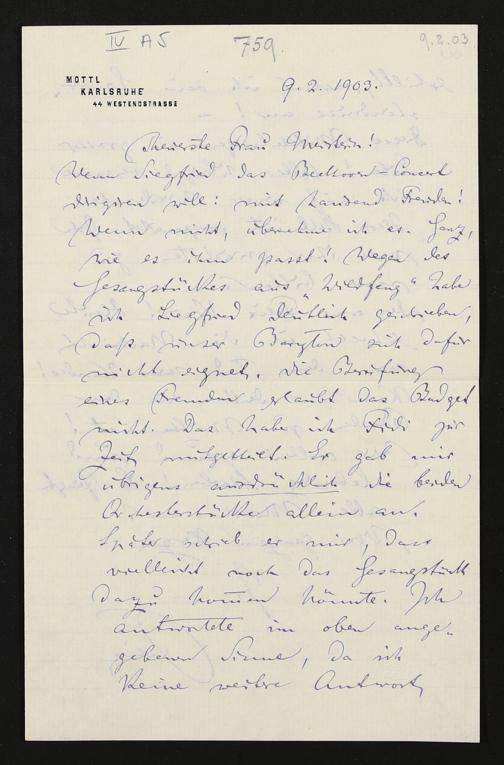 IV A5
759.
9.2.03
MOTTL
KARLSRUHE
44 WESTENDSTRASSE
9.2.1903.
Theuerste Frau Meisterin!
Wenn Siegfried das Beethoven-Concert
dirigiren will: mit tausend Freuden!
Wenn nicht, übernehme ich es. Ganz,
wie es ihm passt! Wegen des
Gesangstückes aus "Wildfang" habe
ich Siegfried deutlich geschrieben,
daß unser Baryton sich dafür
nicht eignet. Die Berufung
eines Fremden erlaubt das Budget
nicht. Das habe ich Fidi zur
Zeit mitgetheilt. Er gab mir
übrigens ausdrücklich die beiden
Orchesterstücke allein an.
Später schrieb er mir, dass
vielleicht noch das Gesangstück
dazu kommen könnte. Ich
antwortete im oben ange-
gebenen Sinne, da ich
keine weitere Antwort